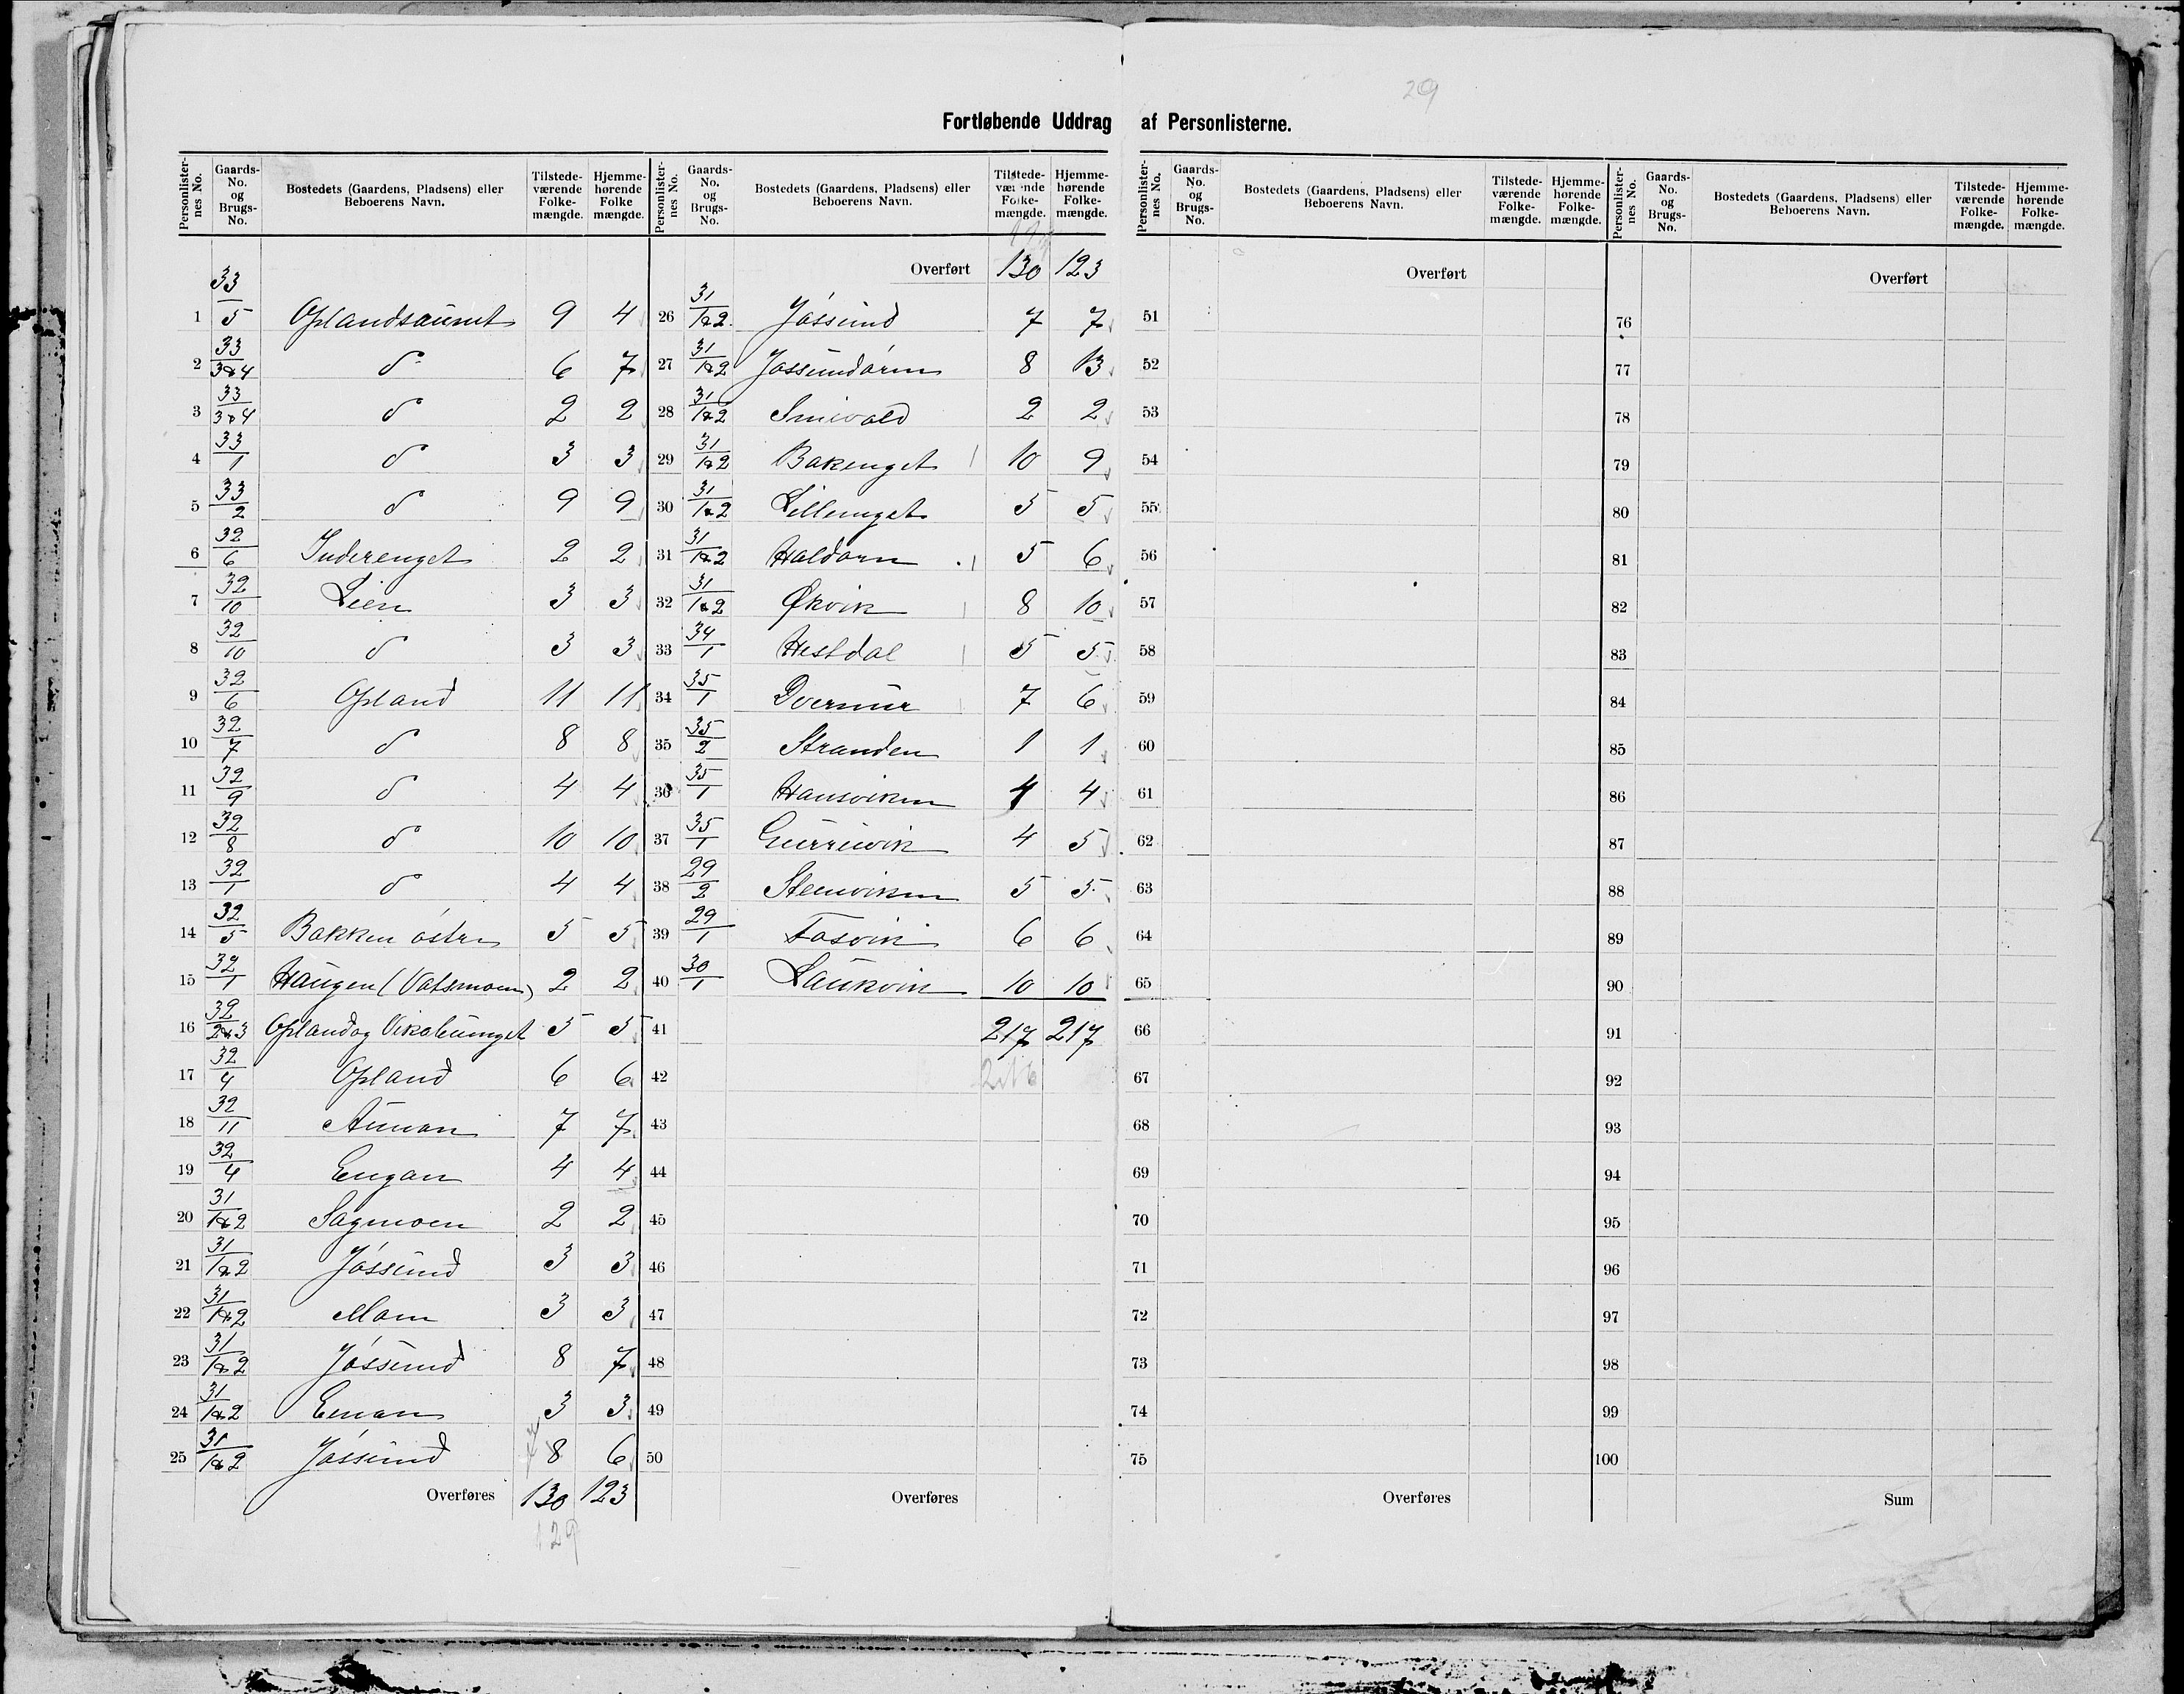 29
Fortløbende Uddrag af Personlisterne.
Personlisternes No. Gaards-No. og Brugs-No. Bostedets (Gaardens, Pladsens) eller Beboerens Navn. Tilstedeværende Folkemængde. Hjemmehørende Folkemængde.
33
1 5 Oplandsaunet 9 4
2 33/3&4 do 6 7
3 33/3&4 do 2 2
4 33/1 do 3 3
5 33/2 do 9 9
6 32/6 Inderenget 2 2
7 32/10 Lien 3 3
8 32/10 do 3 3
9 32/6 Opland 11 11
10 32/7 do 8 8
11 32/9 do 4 4
12 32/8 do 10 10
13 32/1 do 4 4
14 32/5 Bakken östre 5 5
15 32/1 Haugen (Vatsmoen) 2 2
16 32/2&3 Opland og Vikaleumget 5 5
17 32/4 Opland 6 6
18 32/11 Aunan 7 7
19 32/4 Engan 4 4
20 31/1&2 Sagmoen 2 2
21 31/1&2 Jössund 3 3
22 31/1&2 Moen 3 3
23 31/1&2 Jössund 8 7
24 31/1&2 Enan 3 3
25 31/1&2 Jössund 8 6
Overføres 130 123
129
Personlisternes No. Gaards-No. og Brugs-No. Bostedets (Gaardens, Pladsens) eller Beboerens Navn. Tilstedeværende Folkemængde. Hjemmehørende Folkemængde.
Overført 130 123
26 31/1&2 Jössund 7 7
27 31/1&2 Jössundörn 8 13
28 31/1&2 Smivold 2 2
29 31/1&2 Bakenget 10 9
30 31/1&2 Lillenget 5 5
31 31/1&2 Haldorn 5 6
32 31/1&2 Økvik 8 10
33 34/1 Hestdal 5 5
34 35/1 Dvermur 7 6
35 35/2 Stranden 1 1
36 35/1 Hansviken 4 4
37 35/1 Gurruvik 4 5
38 29/2 Stenviken 5 5
39 29/1 Fasvik 6 6
40 30/1 Laukvik 10 10
41 217 217
42 216
43
44
45
46
47
48
49
50
Overføres
Personlisternes No. Gaards-No. og Brugs-No. Bostedets (Gaardens, Pladsens) eller Beboerens Navn. Tilstedeværende Folkemængde. Hjemmehørende Folkemængde.
Overført
51
52
53
54
55
56
57
58
59
60
61
62
63
64
65
66
67
68
69
70
71
72
73
74
75
Overføres
Personlisternes No. Gaards-No. og Brugs-No. Bostedets (Gaardens, Pladsens) eller Beboerens Navn. Tilstedeværende Folkemængde. Hjemmehørende Folkemængde.
Overført
76
77
78
79
80
81
82
83
84
85
86
87
88
89
90
91
92
93
94
95
96
97
98
99
100
Sum